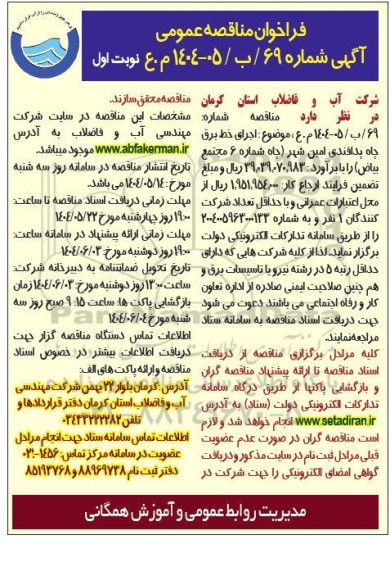 فراخوان مناقصه عمومی
آگهی شماره ۶۹ / ب / ۰۵-۱۴۰۴ م .ع نوبت اول
شرکت آب و فاضلاب استان کرمان
در نظر دارد مناقصه شماره:
۶۹ / ب / ۰۵-۱۴۰۴ م .ع ، موضوع : اجرای خط برق
چاه پدافندی امین شهر (چاه شماره ۶ مجتمع
بیاض) را با برآورد: ۳۹,۰۳۹,۰۷۰,۹۸۳ ریال و مبلغ
تضمین فرایند ارجاع کار: ۱,۹۵۱,۹۵۴,۰۰۰ ریال از
محل اعتبارات عمرانی و با حداقل تعداد شرکت
کنندگان ۱ نفر و به شماره ۲۰۰۴۰۰۵۹۶۳۰۰۰۱۳۳
را از طریق سامانه تدارکات الکترونیکی دولت
برگزار نماید. لذا از کلیه شرکت هایی که دارای
حداقل رتبه ۵ در رشته نیرو یا تاسیسات برق و
هم چنین صلاحیت ایمنی صادره از اداره تعاون
کار و رفاه اجتماعی می باشند دعوت می شود
جهت دریافت اسناد مناقصه به سامانه ستاد
مراجعه نمایند.
کلیه مراحل برگزاری مناقصه از دریافت
اسناد مناقصه تا ارائه پیشنهاد مناقصه گران
و بازگشایی پاکتها از طریق درگاه سامانه
تدارکات الکترونیکی دولت (ستاد) به آدرس
www.setadiran.ir انجام خواهد شد و لازم
است مناقصه گران در صورت عدم عضویت
قبلی مراحل ثبت نام در سایت مذکور و دریافت
گواهی امضای الکترونیکی را جهت شرکت در
مناقصه محقق سازند.
مشخصات این مناقصه در سایت شرکت
مهندسی آب و فاضلاب به آدرس
www.abfakerman.ir موجود میباشد.
تاریخ انتشار مناقصه در سامانه روز سه شنبه
مورخ: ۱۴۰۴/۰۵/۱۴ می باشد.
مهلت زمانی دریافت اسناد مناقصه تا ساعت:
۱۹:۰۰ روز چهارشنبه مورخ: ۱۴۰۴/۰۵/۲۲
مهلت زمانی ارائه پیشنهاد در سامانه ساعت:
۱۹:۰۰ روز دوشنبه مورخ: ۱۴۰۴/۰۶/۰۳
تاریخ تحویل ضمانتنامه به دبیرخانه شرکت:
ساعت ۱۳:۰۰ روز دوشنبه مورخ: ۱۴۰۴/۰۶/۰۳ زمان
بازگشایی پاکت ها: ساعت ۹:۱۵ صبح روز سه
شنبه مورخ ۱۴۰۴/۰۶/۰۴
اطلاعات تماس دستگاه مناقصه گزار جهت
دریافت اطلاعات بیشتر در خصوص اسناد
مناقصه و ارائه پاکت های الف:
آدرس: کرمان بلوار ۲۲ بهمن شرکت مهندسی
آب و فاضلاب استان کرمان دفتر قراردادها و
تلفن ۰۳۴۳۳۲۲۲۲۸۲
اطلاعات تماس سامانه ستاد جهت انجام مراحل
عضویت در سامانه مرکز تماس: ۱۴۵۶-۰۲۱
دفتر ثبت نام ۸۸۹۶۹۷۳۸ و ۸۵۱۹۳۷۶۸
مدیریت روابط عمومی و آموزش همگانی